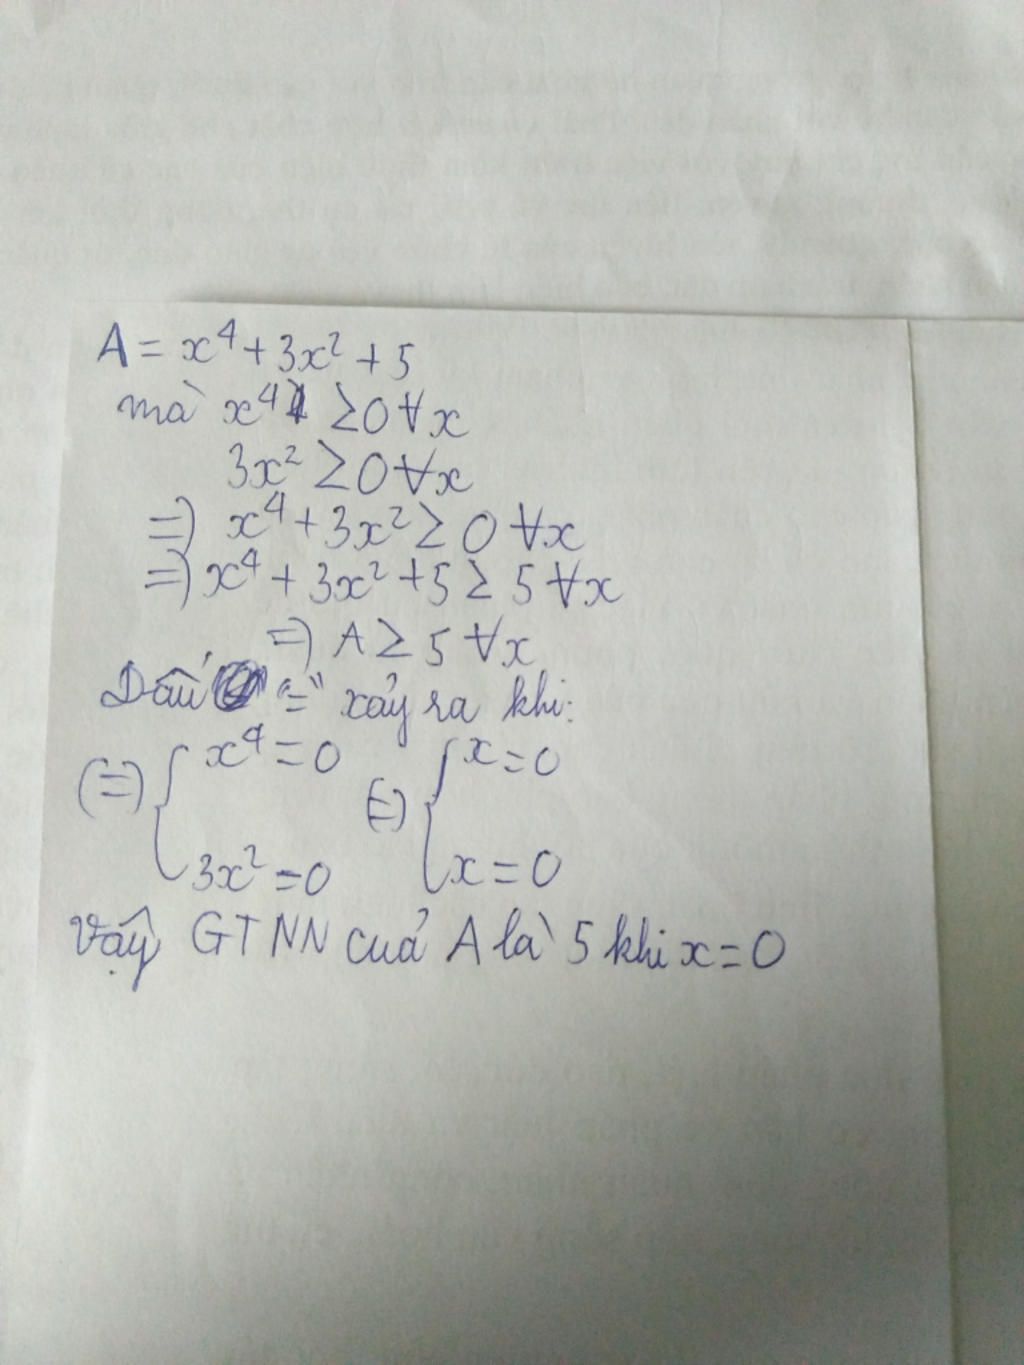 A = x⁴ + 3x² + 5
mà x⁴ ≥ 0 ∀x
3x² ≥ 0 ∀x
=) x⁴ + 3x² ≥ 0 ∀x
=) x⁴ + 3x² + 5 ≥ 5 ∀x
=) A ≥ 5 ∀x
Dấu "=" xảy ra khi:
(=) { x⁴ = 0 (=) { x = 0
3x² = 0 x = 0
Vậy GTNN của A là 5 khi x = 0